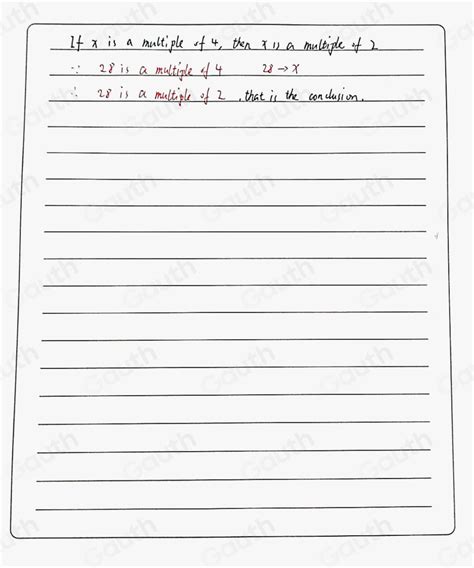 If x is a multiple of 4, then x is a multiple of 2
∵ 28 is a multiple of 4 28 → x
∴ 28 is a multiple of 2 , that is the conclusion.
Gauth